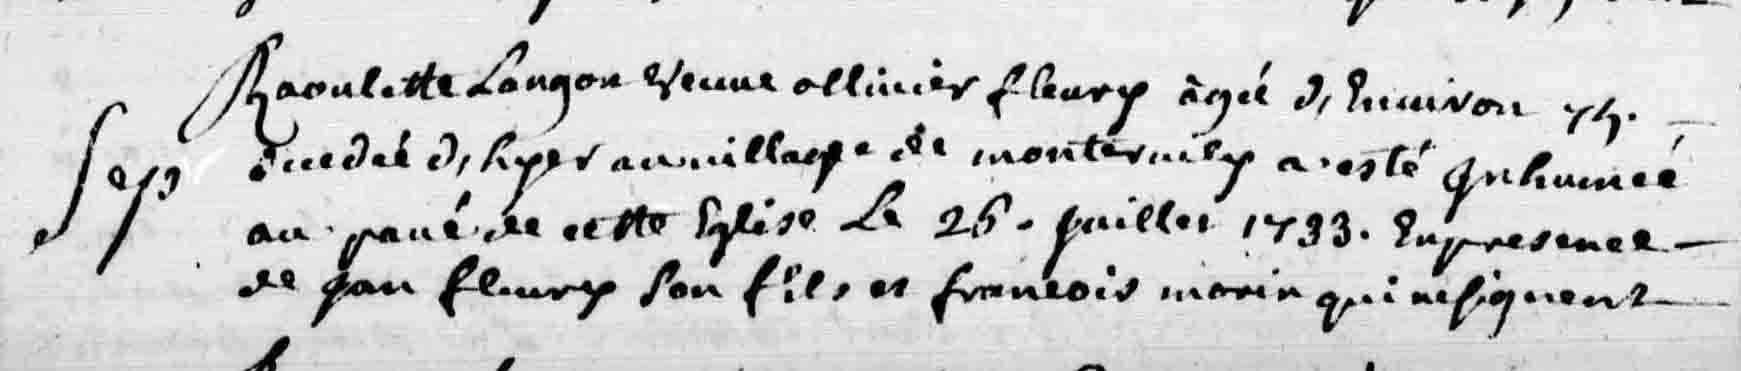 Raoulette Langon Veuve ollivier fleury âgée d'Environ 75.
Sep
décédée d'hyer au village de montervily a esté Inhumée
au pavé de cette Eglise Le 26. juillet 1733. En presence
de jan fleury son fils et francois morin qui ne signent